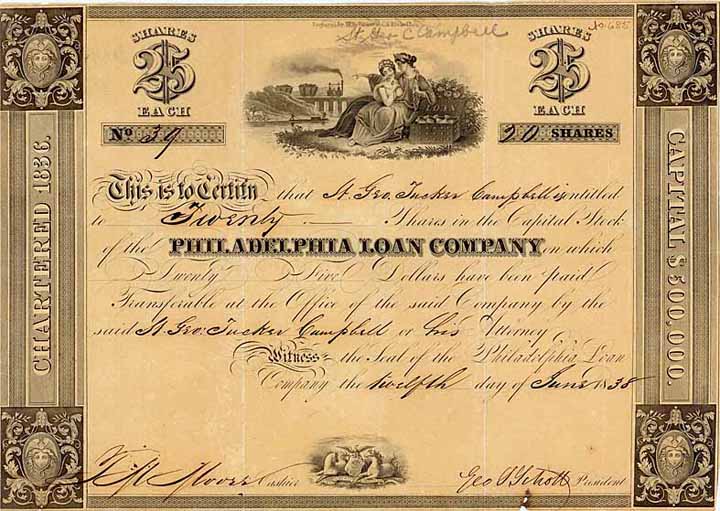 St. Geo C Campbell
SHARES
$25
EACH
SHARES
$25
EACH
No 39
20 SHARES
CHARTERED 1836.
CAPITAL $500,000.
This is to Certify that St. Geo. Tucker Campbell is entitled
to Twenty Shares in the Capital Stock
of the PHILADELPHIA LOAN COMPANY on which
Twenty Five Dollars have been paid
Transferable at the Office of the said Company by the
said St. Geo: Tucker Campbell or his Attorney
Witness the Seal of the Philadelphia Loan
Company the twelfth day of June 1838
Cashier
President